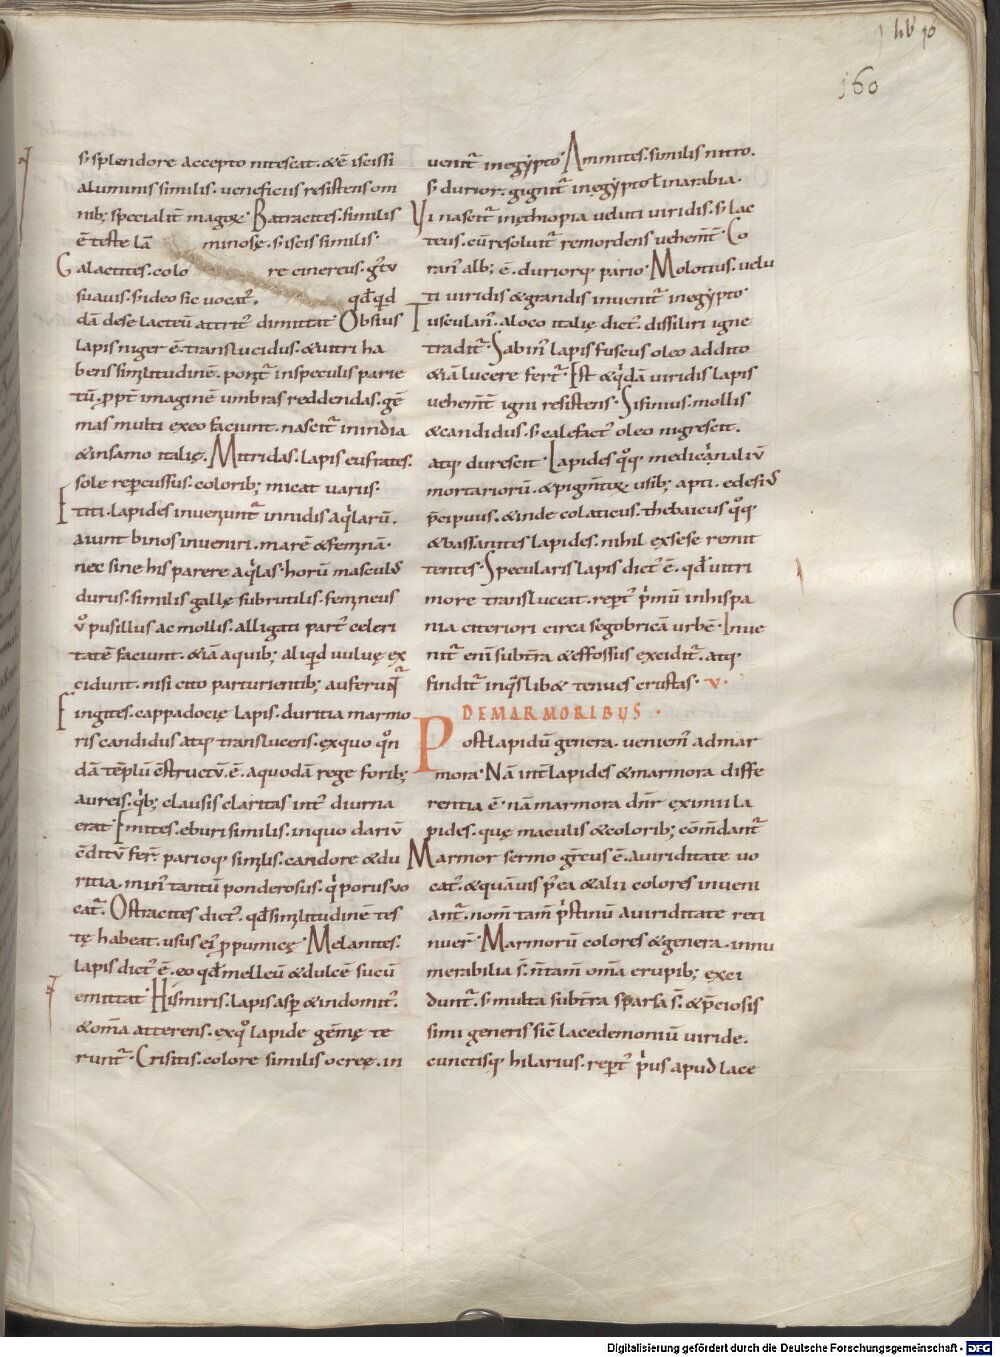 lib 16
160
s; splendore accepto nitescat. &ē iscissi
aluminis similis. ueneficiis resistens om
nib; specialit̄ magoꝝ. Batracites. similis
ē teste lā minosę. s; iscis similis.
Galactites. colo re cinereus. gr̄tu
suauis. s; ideo sic uocat᷒. qd̄ qid
dā dese lacteū attrit᷒ dimittat. Obsius
lapis niger ē. translucidus. & uitri ha
bens similitudinē. ponunt᷒ inspeculis parie
tū. ꝓpt̄ imaginē umbras reddendas. gē
mas multi exeo faciunt. nascit᷒ inindia
& insamo italię. Mitridas. lapis eufrates.
sole reꝑcussus. colorib; micat uariis.
Etiti. lapides inueniunt᷒ innidis aqilarū.
aiunt binos inueniri. marē & feminā.
nec sine his parere aqilas. horū masculꝰ
durus. similis gallę subrutilis. femineus
ūo pusillus ac mollis. alligati part᷒ celeri
tatē faciunt. & iā aquib; aliqid uuluę ex
cidunt. nisi cito parturientib; auferunt᷒
Fingites. cappadocię lapis. duritia marmo
ris candidus atq; translucens. exquo qon
dā tēplū cstructū. ē. aquodā rege forib;
aureis. qib; clausis claritas int᷒ diurna
erat. Ernites. eburi similis. inquo dariū
cditū fer̄t parioq; similis. candore & du
ritia. min᷒ tantū ponderosus. qi porus uo
cat᷒. Ostracites dict᷒. qd̄ similitudinē tes
tę habeat. usus ei᷒ ꝓ pumicę. Melanites.
lapis dict᷒ ē. eo qd̄ melleū & dulcē sucū
emittat. Hismiris. lapis asꝑ & indomit᷒.
& om̄a atterens. exqo lapide gēmę te
runt᷒. Crisitis. colore similis ocreę. in
uenit᷒ inegẏpto. Ammites. similis nitro.
s; durior. gignit᷒ inegẏpto ł inarabia.
Vi nascit᷒ inęthiopia ueluti uiridis. s; lac
teus. cū resoluit᷒ remordens uehemt̄. Co
ran᷒ alb; ē. duriorq; pario. Molotius. uelu
ti uiridis & grandis inuenit᷒ inegẏpto.
Tusculan᷒. aloco italię dict᷒. dissiliri igne
tradit᷒. Sabin᷒ lapis fuscus oleo addito
& iā lucere fert᷒. Est & qidā uiridis lapis
uehemt̄ igni resistens. Sisinius. mollis
& candidus. s; calefact᷒ oleo nigrescit.
atq; durescit. Lapides qoq; medicinaliū
mortariorū. & pigmtoꝝ. usib; apti. edesiꝰ
p̄cipuus. & inde colaticus. thebaicus qoq;
& bassanites lapides. nihil exsese remit
tentes. Specularis lapis dict᷒ ē. qd̄ uitri
more transluceat. reꝑt᷒ pimū inhispa
nia citeriori circa segobricā urbē. Inue
nit᷒ eni subt̄ra & effossus excidit᷒. atq;
findit᷒ inqislib& tenues crustas. v.
DE MARMORIBUS.
Post lapidū genera. ueniem᷒ ad mar
mora. Nā int̄ lapides & marmora diffe
rentia ē. nā marmora dnr̄ eximii la
pides. quę maculis & colorib; cōm̄dant᷒
Marmor sermo gr̄cus ē. auiriditate uo
cat᷒. & quāuis p᷒ea & alii colores inueni
ant᷒. nom̄ tam̄ pistinū auiriditate reti
nuer̄. Marmorū colores & genera. innu
merabilia s̄. n̄ tam̄ om̄a erupib; exci
dunt᷒. s; multa subt̄ra sparsa s̄. & p̄ciosis
simi generis sic̄ lacedemoniū uiride.
cunctisq; hilarius. reꝑt᷒ pius apud lace
Digitalisierung gefördert durch die Deutsche Forschungsgemeinschaft - DFG